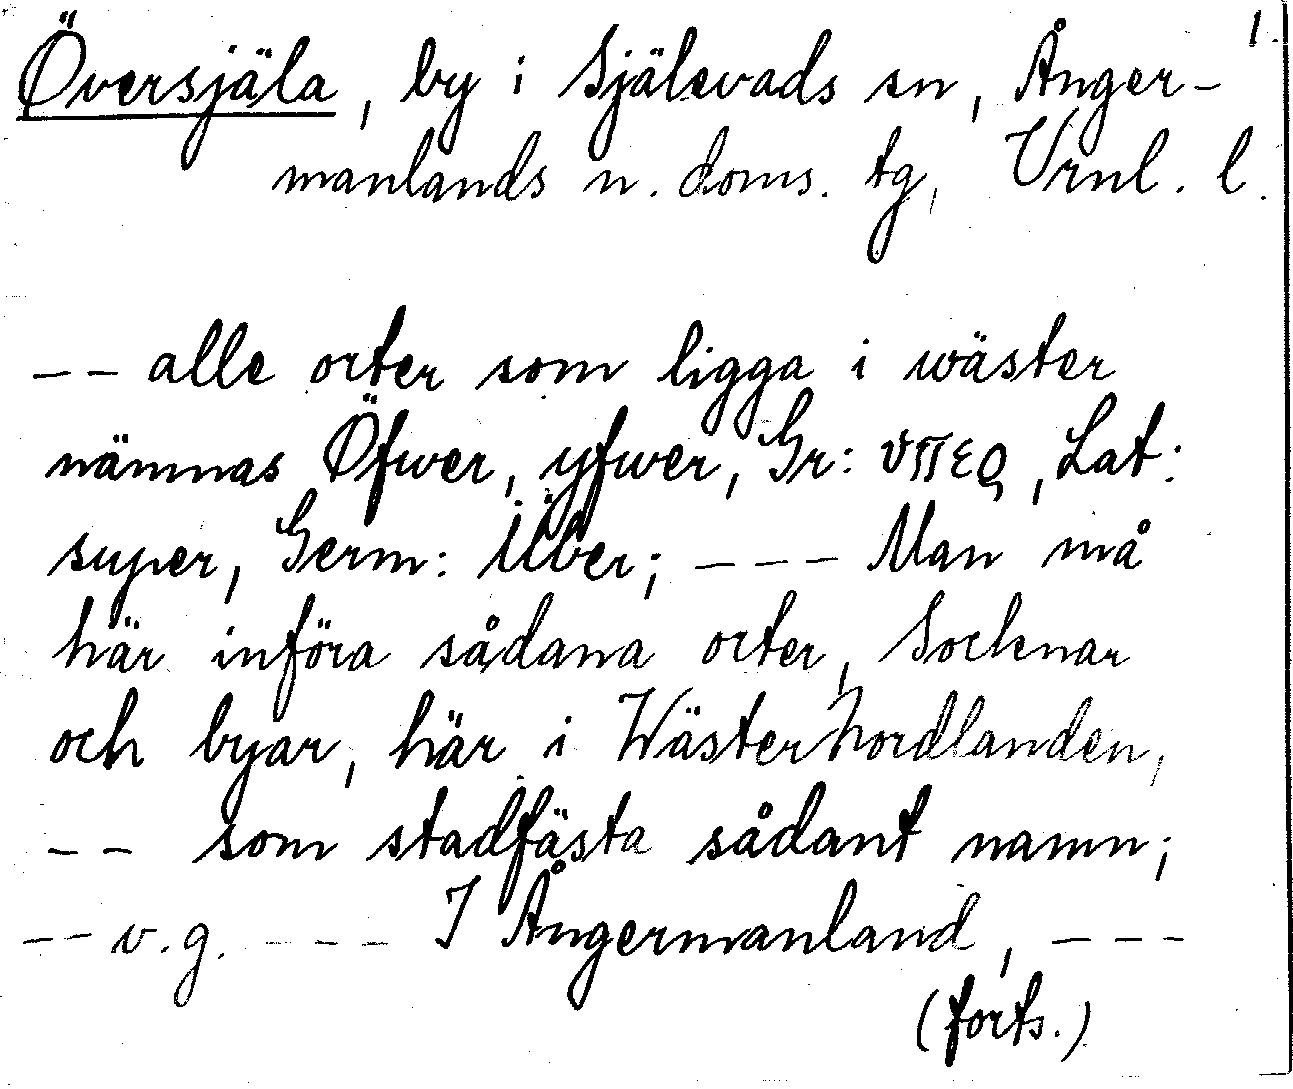 1.
Översjäla, by i Själevads sn, Ånger-
manlands n. doms. tg, Vrnl. l.
-- alle orter som ligga i wäster
nämnas Öfwer, yfwer, Gr: υπερ, Lat:
super, Germ: Über; --- Man må
här införa sådana orter, Socknar
och byar, här i Wästernordlanden,
-- som stadfästa sådant namn;
-- v.g. --- I Ångermanland, ---
(forts.)